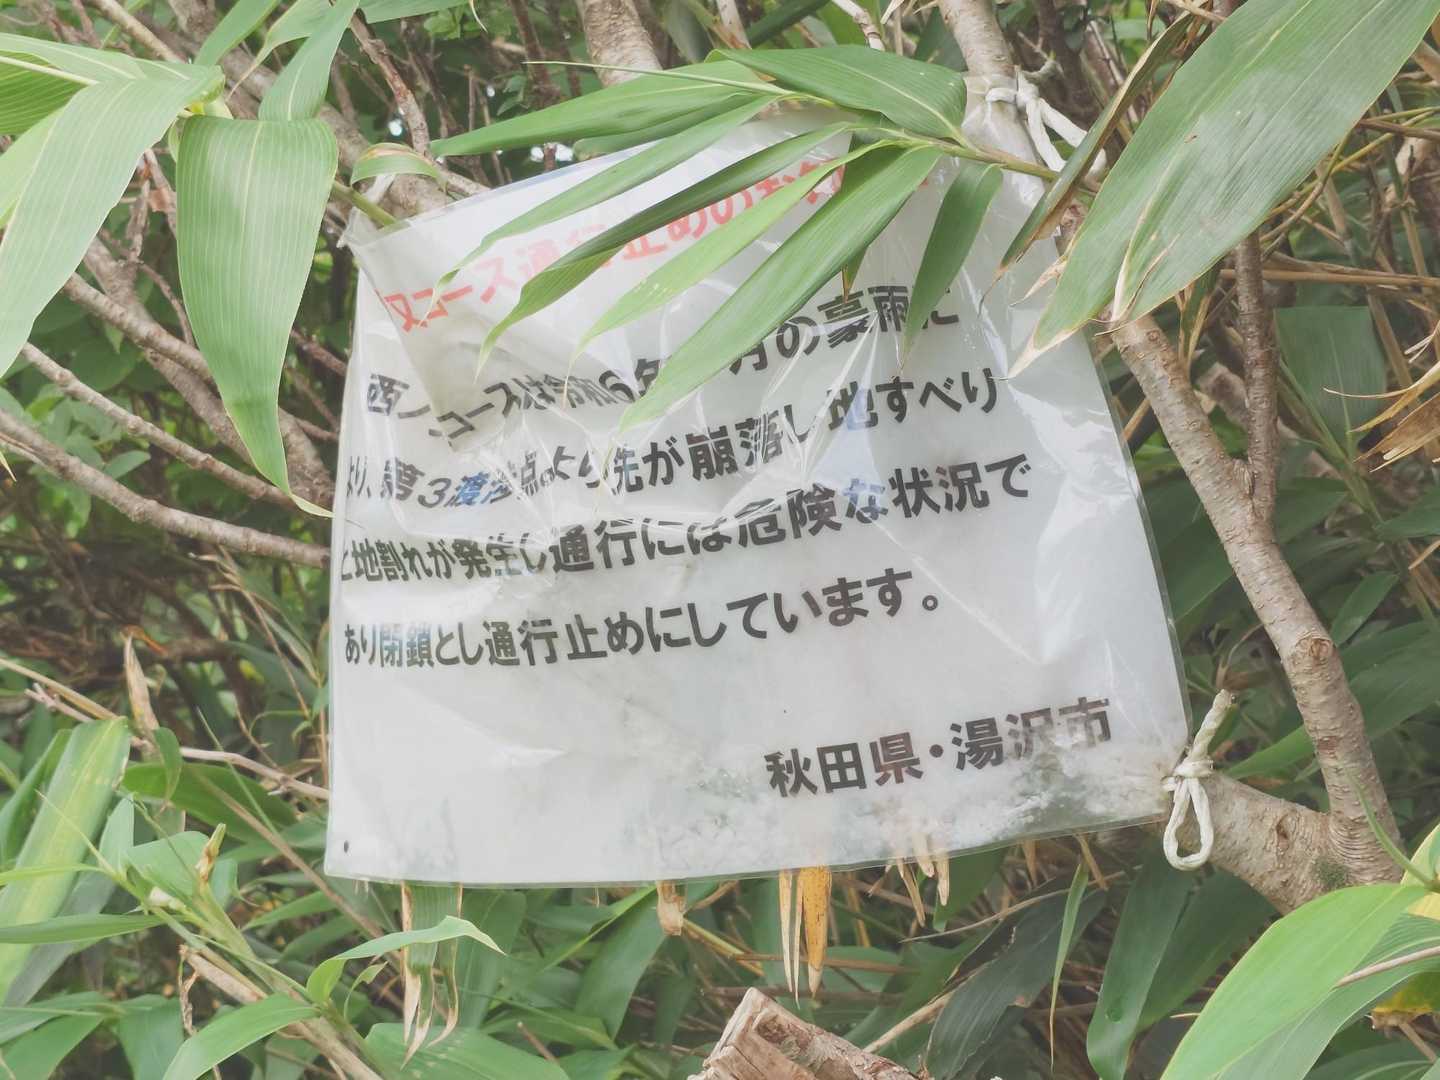 コース通行止めのお知
西ノコースは令和6年 月の豪雨に
より、第3渡渉点より先が崩落し地すべり
と地割れが発生し通行には危険な状況で
あり閉鎖とし通行止めにしています。
秋田県・湯沢市